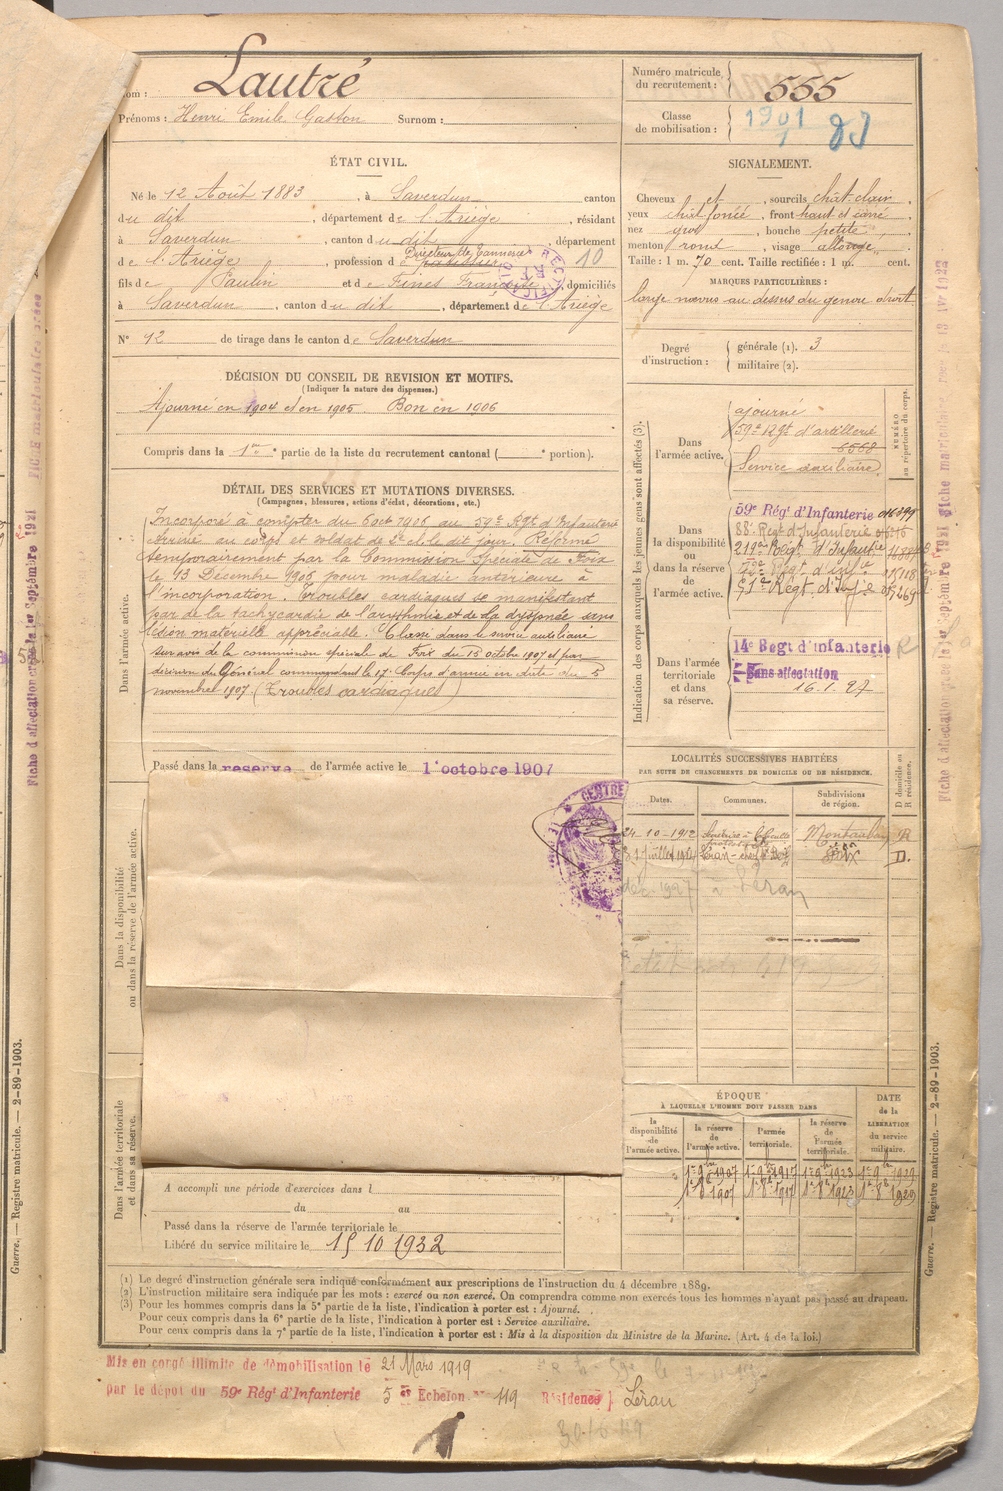 Nom : Lautré
Prénoms : Henri Emile Gaston Surnom :
Numéro matricule du recrutement : 555
Classe de mobilisation : 1901
ÉTAT CIVIL.
Né le 12 Août 1883, à Saverdun canton
du dit, département de l'Ariège, résidant
à Saverdun, canton du dit, département
de l'Ariège, profession de Directeur de Tannerie 10
fils de Paulin et de Finès Françoise, domiciliés
à Saverdun, canton du dit, département de l'Ariège
N° 12 de tirage dans le canton de Saverdun
SIGNALEMENT.
Cheveux et, sourcils chât. clair,
yeux chât. foncé, front haut et carré
nez gros, bouche petite,
menton rond, visage allongé,
Taille : 1 m. 70 cent. Taille rectifiée : 1 m. cent.
MARQUES PARTICULIÈRES :
large nævus au dessus du genou droit
Degré d'instruction : générale (1). 3
militaire (2).
DÉCISION DU CONSEIL DE REVISION ET MOTIFS.
(Indiquer la nature des dispenses.)
Ajourné en 1904 et en 1905. Bon en 1906
Compris dans la 1re partie de la liste du recrutement cantonal ( portion).
DÉTAIL DES SERVICES ET MUTATIONS DIVERSES.
(Campagnes, blessures, actions d'éclat, décorations, etc.)
Dans l'armée active.
Incorporé à compter du 6 oct 1906 au 59e Régt d'Infanterie
Arrivé au corps et soldat de 2e cl. le dit jour. Réformé
temporairement par la Commission Spéciale de Foix
le 13 Décembre 1906 pour maladie antérieure à
l'incorporation. Troubles cardiaques se manifestant
par de la tachycardie de l'arythmie et de la dyspnée sans
lésion matérielle appréciable. Classé dans le service auxiliaire
sur avis de la commission spéciale de Foix du 15 octobre 1907 et par
décision du Général commandant le 17e Corps d'armée en date du 5
novembre 1907 (Troubles cardiaques)
Passé dans la reserve de l'armée active le 1er octobre 1907
Indication des corps auxquels les jeunes gens sont affectés (3).
NUMÉRO au répertoire du corps.
Dans l'armée active.
ajourné
59e Régt d'artillerie
6568
Service auxiliaire
Dans la disponibilité ou dans la réserve de l'armée active.
59e Rég' d'Infanterie
88e Regt d'Infanterie
219e Régt d'Infantie
Régt d'Infie
Dans l'armée territoriale et dans sa réserve.
14e Regt d'infanterie
Sans affectation
16.1.27
LOCALITÉS SUCCESSIVES HABITÉES
PAR SUITE DE CHANGEMENTS DE DOMICILE OU DE RÉSIDENCE.
Dates. Communes. Subdivisions de région. D domicile ou R résidence.
24-10-1912 Montauban R
Foix D.
déc 1927 à Léran
Dans la disponibilité ou dans la réserve de l'armée active.
Dans l'armée territoriale et dans sa réserve.
ÉPOQUE
À LAQUELLE L'HOMME DOIT PASSER DANS
DATE de la LIBÉRATION du service militaire.
la disponibilité de l'armée active. la réserve de l'armée active. l'armée territoriale. la réserve de l'armée territoriale.
1er 9bre 1907 1er 9bre 1917 1er 9bre 1923 1er 9bre 1929
1er 8bre 1907 1er 8bre 1917 1er 8bre 1923 1er 8bre 1929
A accompli une période d'exercices dans l
du au
Passé dans la réserve de l'armée territoriale le
Libéré du service militaire le 15 10 1932
(1) Le degré d'instruction générale sera indiqué conformément aux prescriptions de l'instruction du 4 décembre 1889.
(2) L'instruction militaire sera indiquée par les mots : exercé ou non exercé. On comprendra comme non exercés tous les hommes n'ayant pas passé au drapeau.
(3) Pour les hommes compris dans la 5e partie de la liste, l'indication à porter est : Ajourné.
Pour ceux compris dans la 6e partie de la liste, l'indication à porter est : Service auxiliaire.
Pour ceux compris dans la 7e partie de la liste, l'indication à porter est : Mis à la disposition du Ministre de la Marine. (Art. 4 de la loi.)
Mis en congé illimité de démobilisation le 21 Mars 1919
par le dépôt du 59e Rég' d'Infanterie 5 er Echelon N° 119 Résidence } Léran
Guerre. — Registre matricule. — 2-89-1903.
Guerre. — Registre matricule. — 2-89-1903.
Fiche d'affectation créée le 1er Septembre 1921